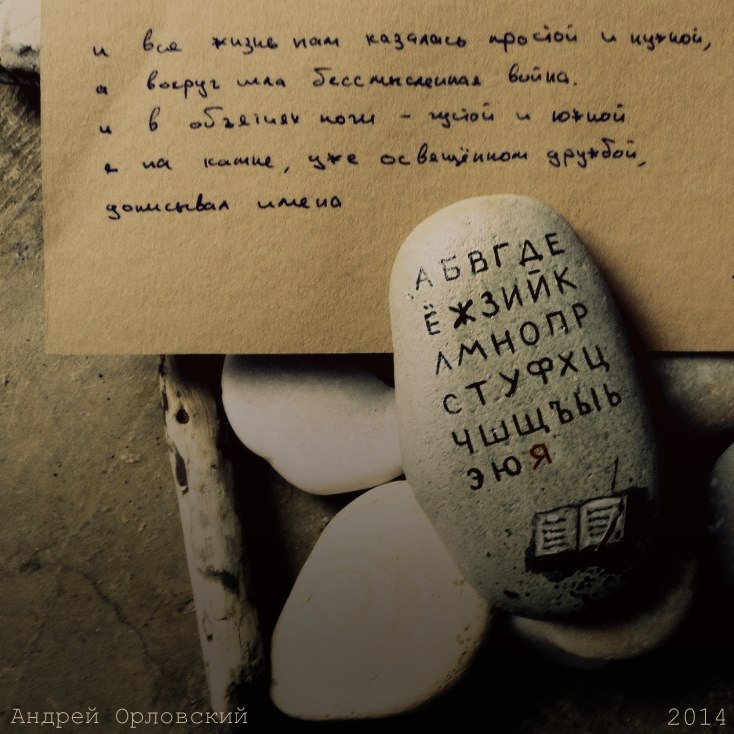 и вся жизнь нам казалась простой и нужной,
а вокруг шла бессмысленная война.
и в объятиях ночи – густой и южной
я на камне, уже освящённом дружбой,
дописывал имена
АБВГДЕ
ЁЖЗИЙК
ЛМНОПР
СТУФХЦ
ЧШЩЪЫЬ
ЭЮЯ
Андрей Орловский
2014